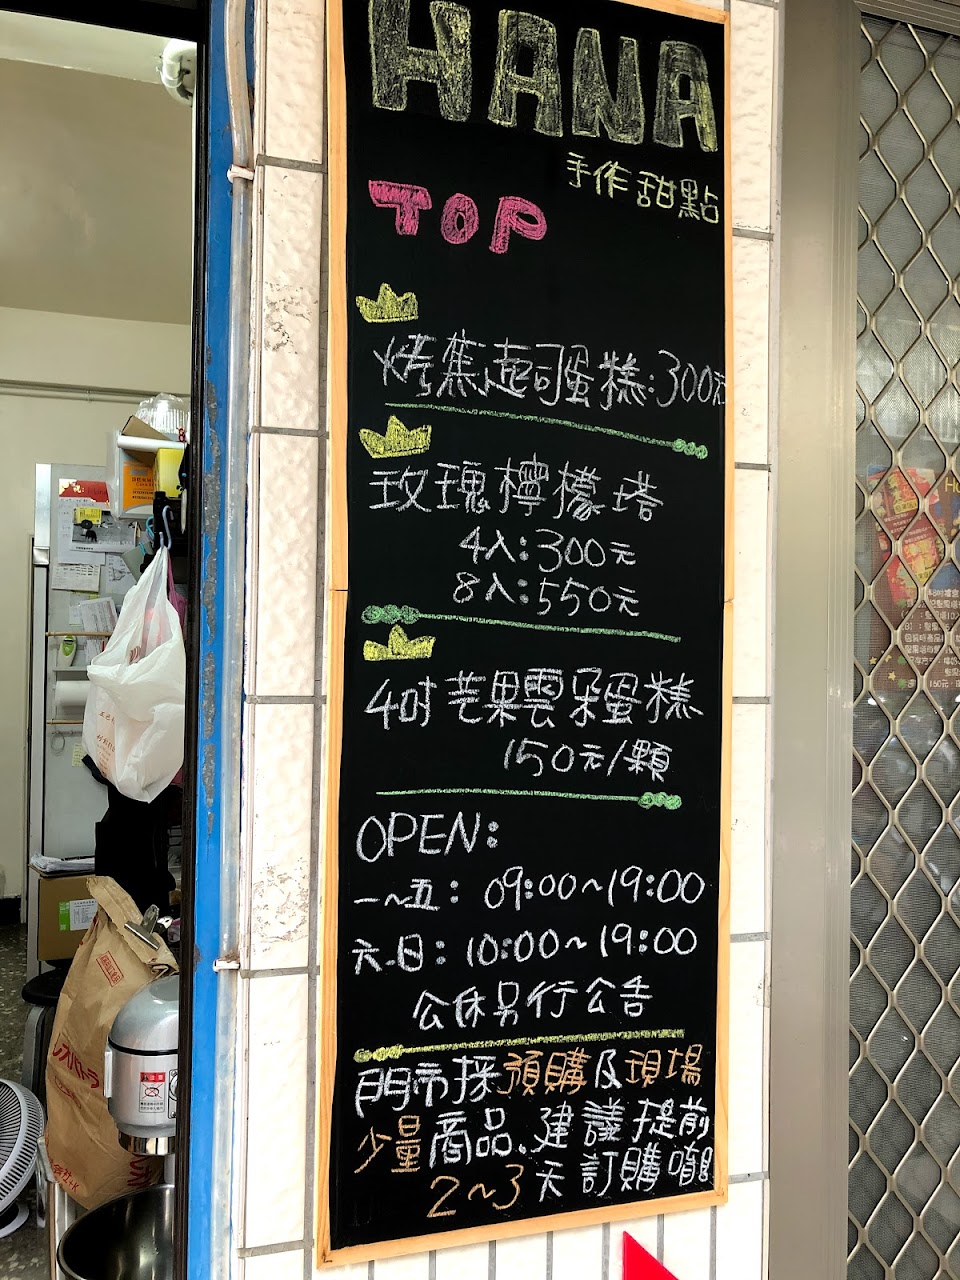 HANA
手作甜點
TOP
烤焦起司蛋糕:300元
玫瑰檸檬塔
4入:300元
8入:550元
4吋芒果雲朵蛋糕
150元/顆
OPEN:
一~五: 09:00~19:00
六.日: 10:00~19:00
公休另行公告
門市採預購及現場
少量商品、建議提前
2~3天訂購唷!